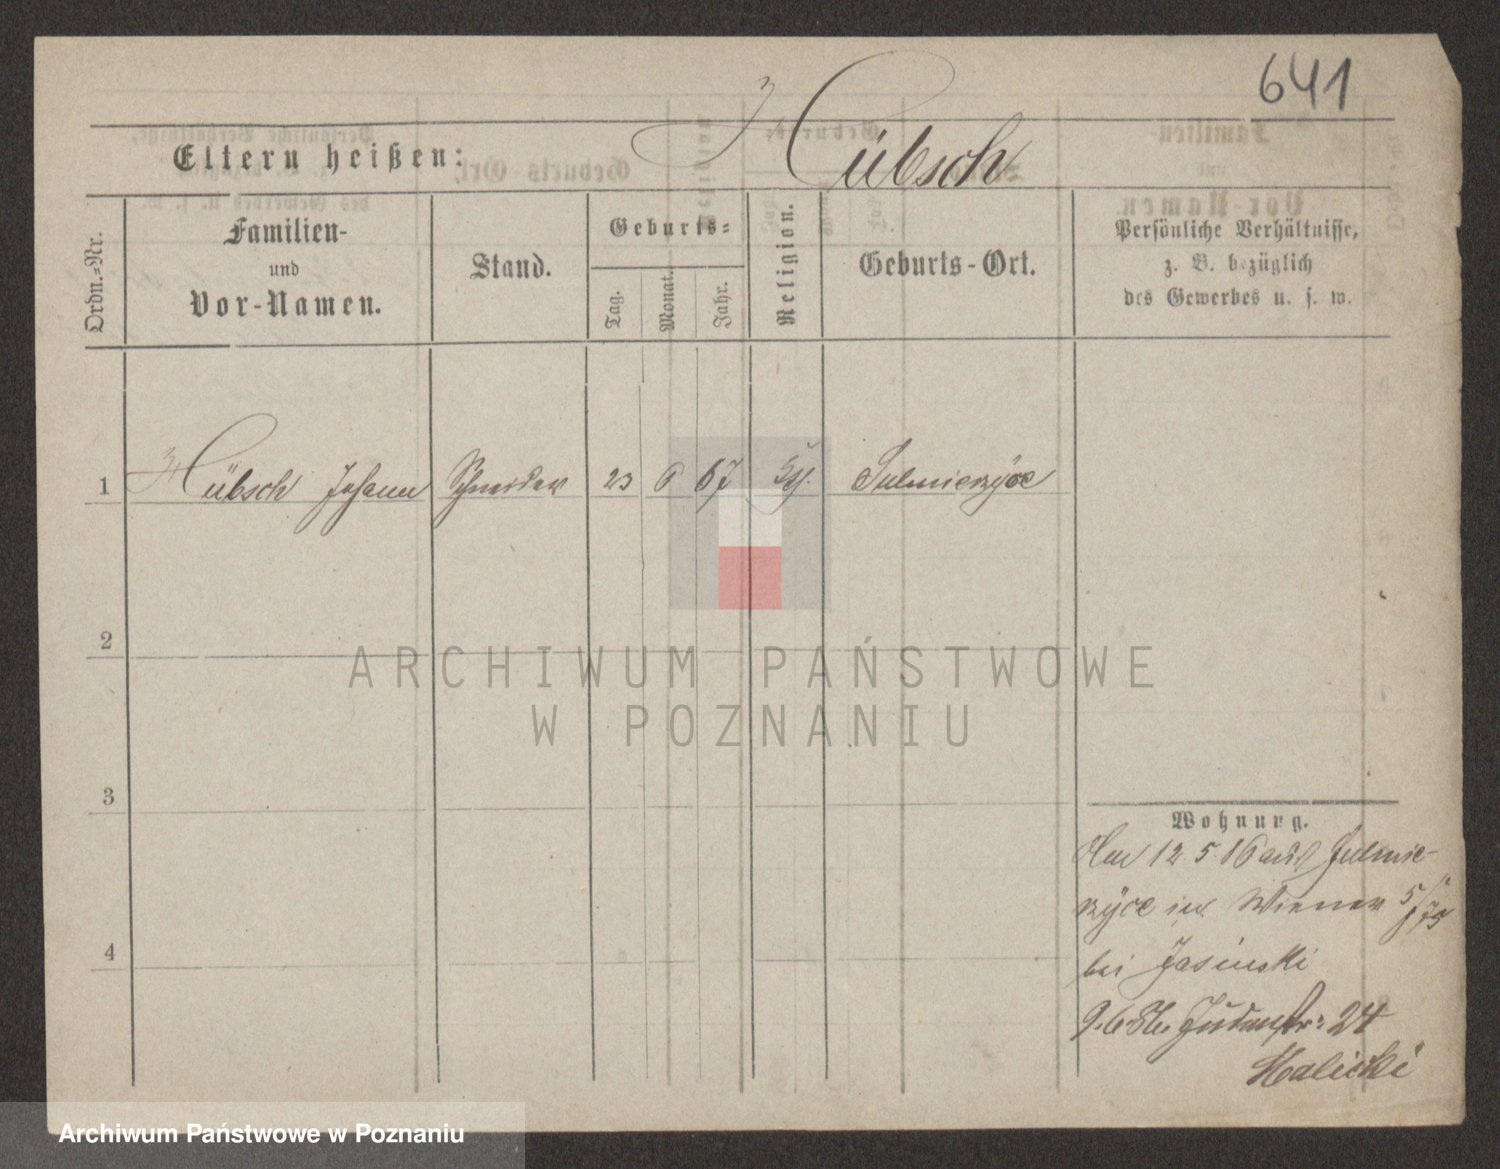 641
Eltern heißen: Hübsch
Ordn.=Nr.
Familien-
und
Vor-Namen.
Stand.
Geburts=
Tag.
Monat.
Jahr.
Religion.
Geburts-Ort.
Persönliche Verhältnisse,
z. B. bezüglich
des Gewerbes u. s. w.
1 Hübsch Johann Schneider 23 6 67 Sulmierzyce
2
3
4
Wohnung.
12. 5. 86 aus Sulmie-
rzyce Wiener
bei Jasinski
9. 6. 86. Judenstr: 24
Malicki
ARCHIWUM PAŃSTWOWE
W POZNANIU
Archiwum Państwowe w Poznaniu